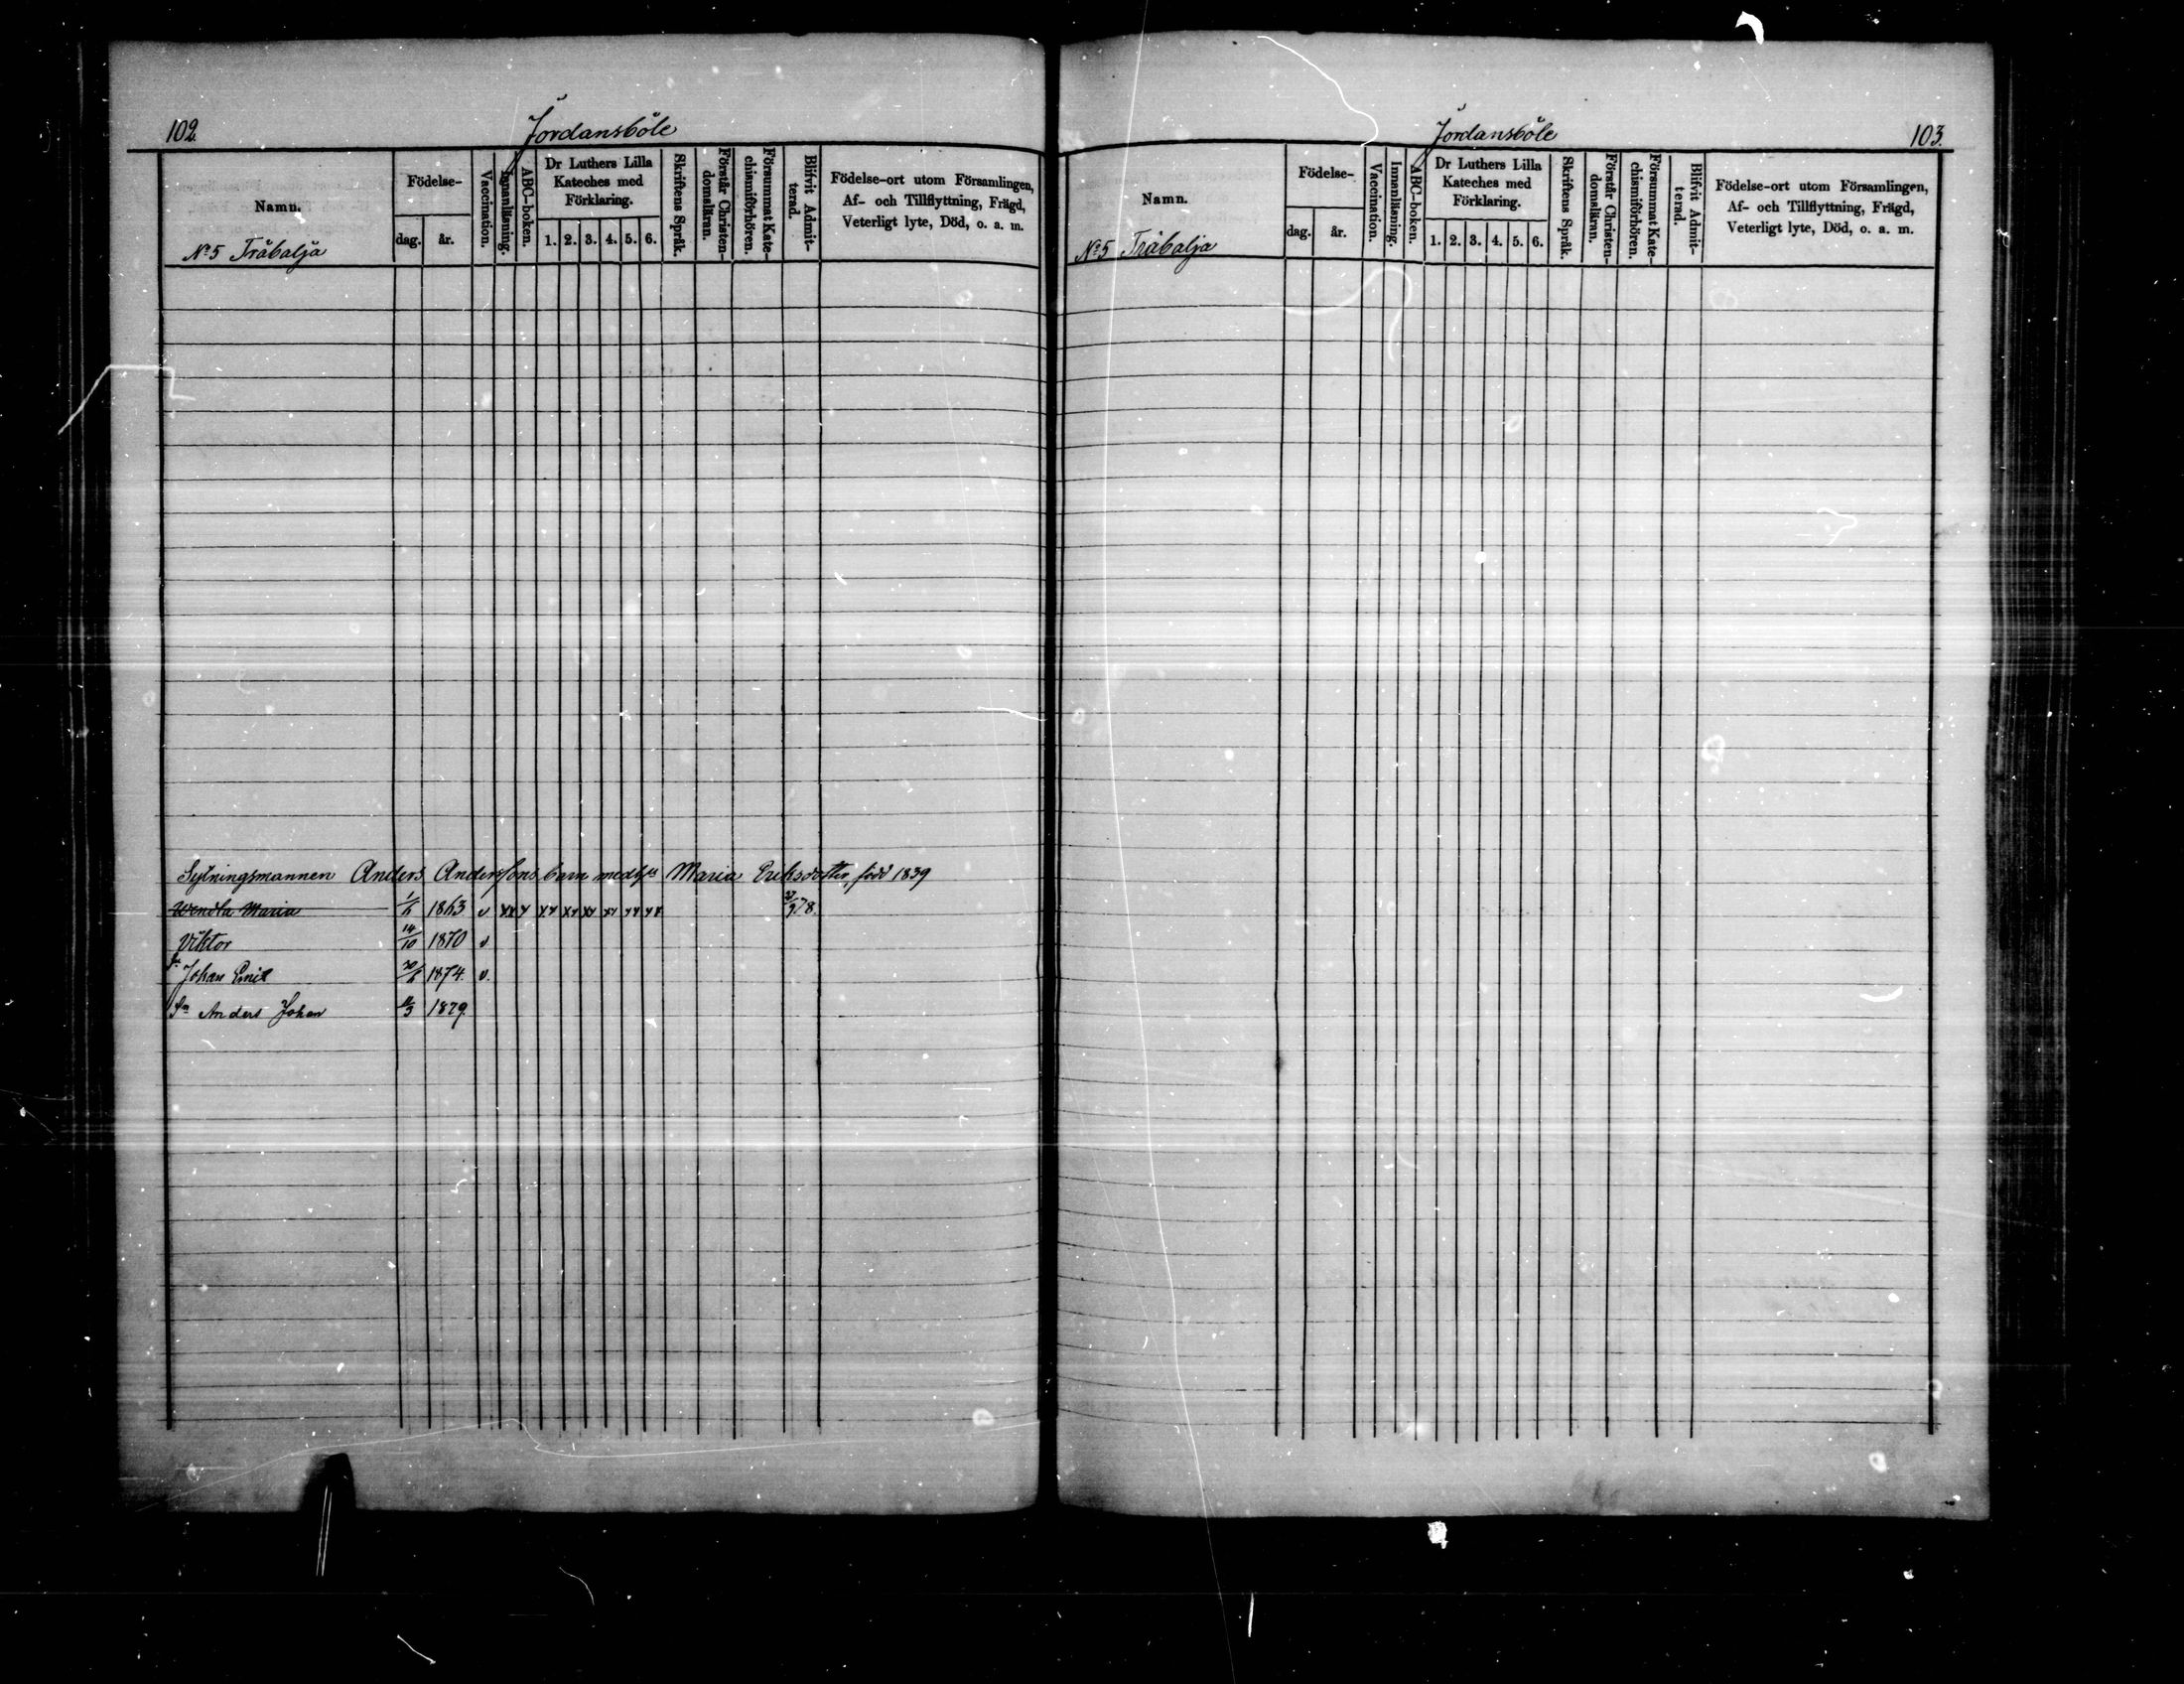 102.
Jordansböle
Namn.
Födelse-
dag. år.
Vaccination.
Innanläsning.
ABC-boken.
Dr Luthers Lilla
Kateches med
Förklaring.
1. 2. 3. 4. 5. 6.
Skriftens Språk.
Förstår Christen-
domsläran.
Försummat Kate-
chismiförhören.
Blifvit Admit-
terad.
Födelse-ort utom Församlingen,
Af- och Tillflyttning, Frägd,
Veterligt lyte, Död, o. a. m.
No 5 Träbalja
Sytningsmannen Anders Anderssons barn med h. Maria Eriksdotter, född 1839
Wendla Maria 1/6 1863 v xx x xx xx xx xx xx xx /9 78.
Viktor 14/10 1870 v
Johan Emil 20/6 1874. v.
Sn Anders Johan /3 1879.
Jordansböle
103.
Namn.
Födelse-
dag. år.
Vaccination.
Innanläsning.
ABC-boken.
Dr Luthers Lilla
Kateches med
Förklaring.
1. 2. 3. 4. 5. 6.
Skriftens Språk.
Förstår Christen-
domsläran.
Försummat Kate-
chismiförhören.
Blifvit Admit-
terad.
Födelse-ort utom Församlingen,
Af- och Tillflyttning, Frägd,
Veterligt lyte, Död, o. a. m.
No 5 Träbalja